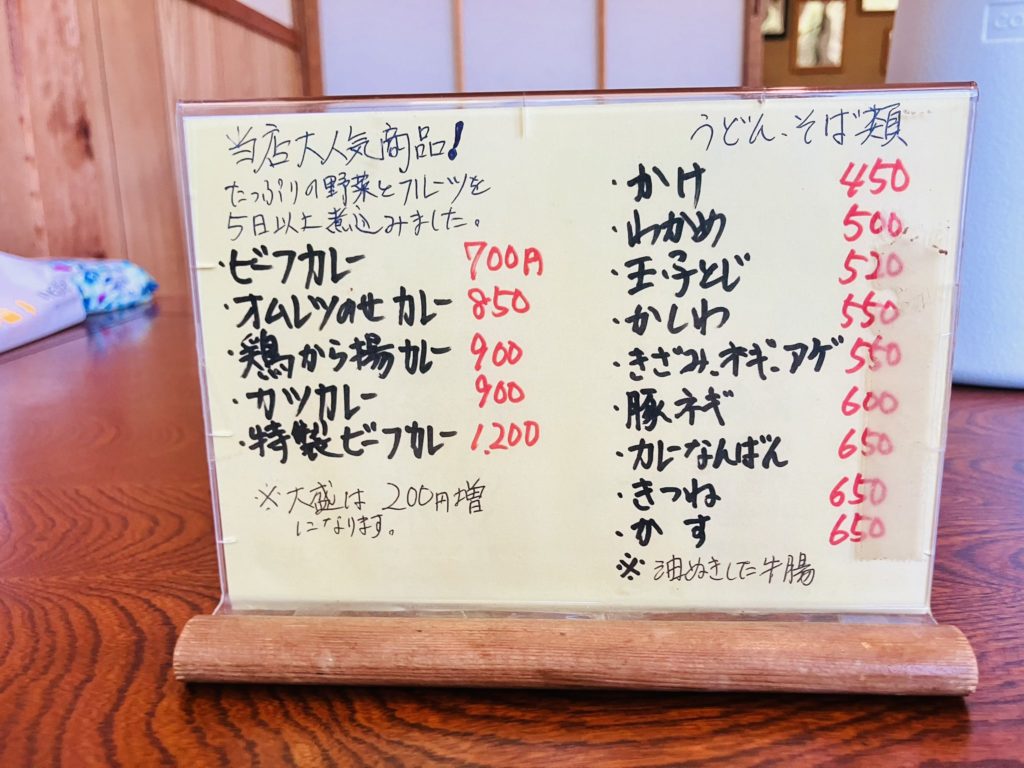 当店大人気商品!
たっぷりの野菜とフルーツを
5日以上煮込みました。
・ビーフカレー 700円
・オムレツのせカレー 850
・鶏から揚カレー 900
・カツカレー 900
・特製ビーフカレー 1.200
※大盛は 200円増
になります。
うどん、そば類
・かけ 450
・わかめ 500
・玉子とじ 520
・かしわ 550
・きざみ、ネギ、アゲ 550
・豚ネギ 600
・カレーなんばん 650
・きつね 650
・かす 650
※油ぬきした牛腸